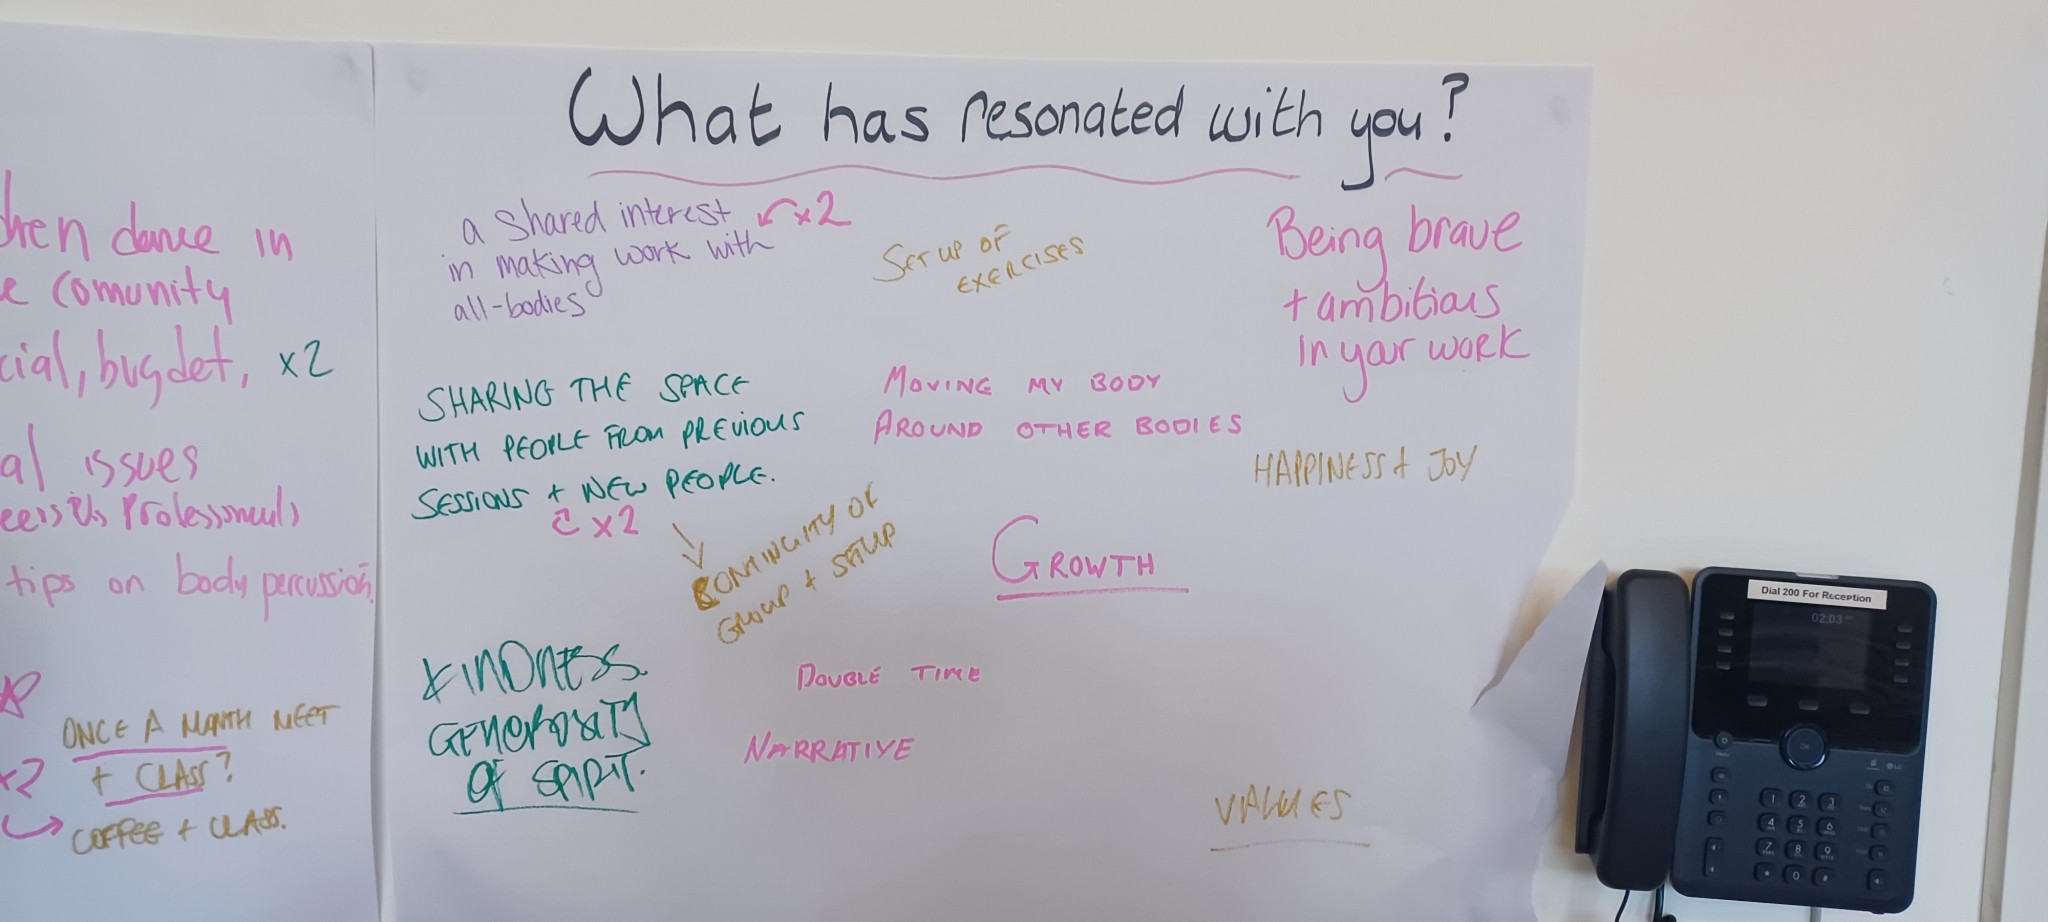 dren dance in
e Comunity
cial, bugdet, x2
al issues
Professionals
tips on body percussion
ONCE A MONTH MEET
x2 + CLASS?
COFFEE + CLASS.
What has resonated with you?
a shared interest x2
in making work with
all-bodies
SET UP OF
EXERCISES
Being brave
+ ambitious
in your work
SHARING THE SPACE
WITH PEOPLE FROM PREVIOUS
SESSIONS + NEW PEOPLE.
x2
MOVING MY BODY
AROUND OTHER BODIES
HAPPINESS + JOY
CONTINUITY OF
GROUP + SETUP
GROWTH
KINDNESS.
GENEROSITY
OF SPIRIT.
DOUBLE TIME
NARRATIVE
VALUES
Dial 200 For Reception
02.03
OK
1 2 3
4 5 6
7 8 9
* 0 #